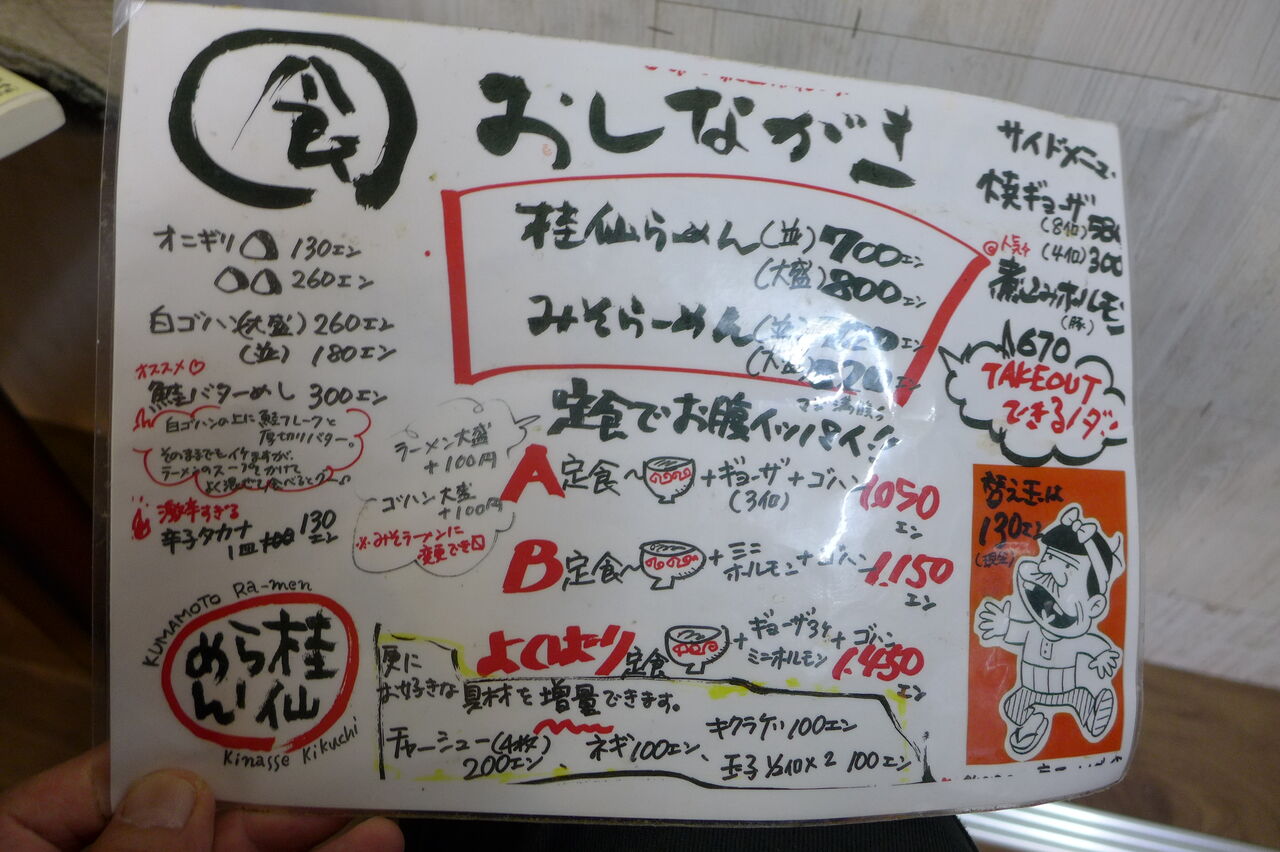 食
おしながき
桂仙らーめん(並)700エン
(大盛)800エン
みそらーめん(並)
(大盛)
オニギリ 130エン
260エン
白ゴハン(大盛)260エン
(並)180エン
オススメ♡
鮭バターめし 300エン
白ゴハンの上に鮭フレークと
厚切りバター。
そのままでもイケますが、
ラーメンのスープをかけて
よく混ぜて食べると
激辛すぎる
辛子タカナ
1皿 130エン
KUMAMOTO Ra-men
桂仙
らーめん
Kinasse Kikuchi
定食でお腹イッパイ!!
マジ満腹
ラーメン大盛
+100円
ゴハン大盛
+100円
※みそラーメンに
変更でき
A定食〜+ギョーザ+ゴハン 1,050エン
(3個)
B定食〜+ミニホルモン+ゴハン 1,150エン
よくばり定食+ギョーザ3ケ+ゴハン 1,450エン
ミニホルモン
更に
お好きな具材を増量できます。
チャーシュー(4枚)
200エン、
ネギ100エン、
キクラゲ100エン
玉子1/2個×2 100エン
サイドメニュー
焼ギョーザ
(8個)580
人気
(4個)300
煮込みホルモン
(豚)
670
TAKEOUT
できるノダ!!
替え玉は
130エン
(現金)